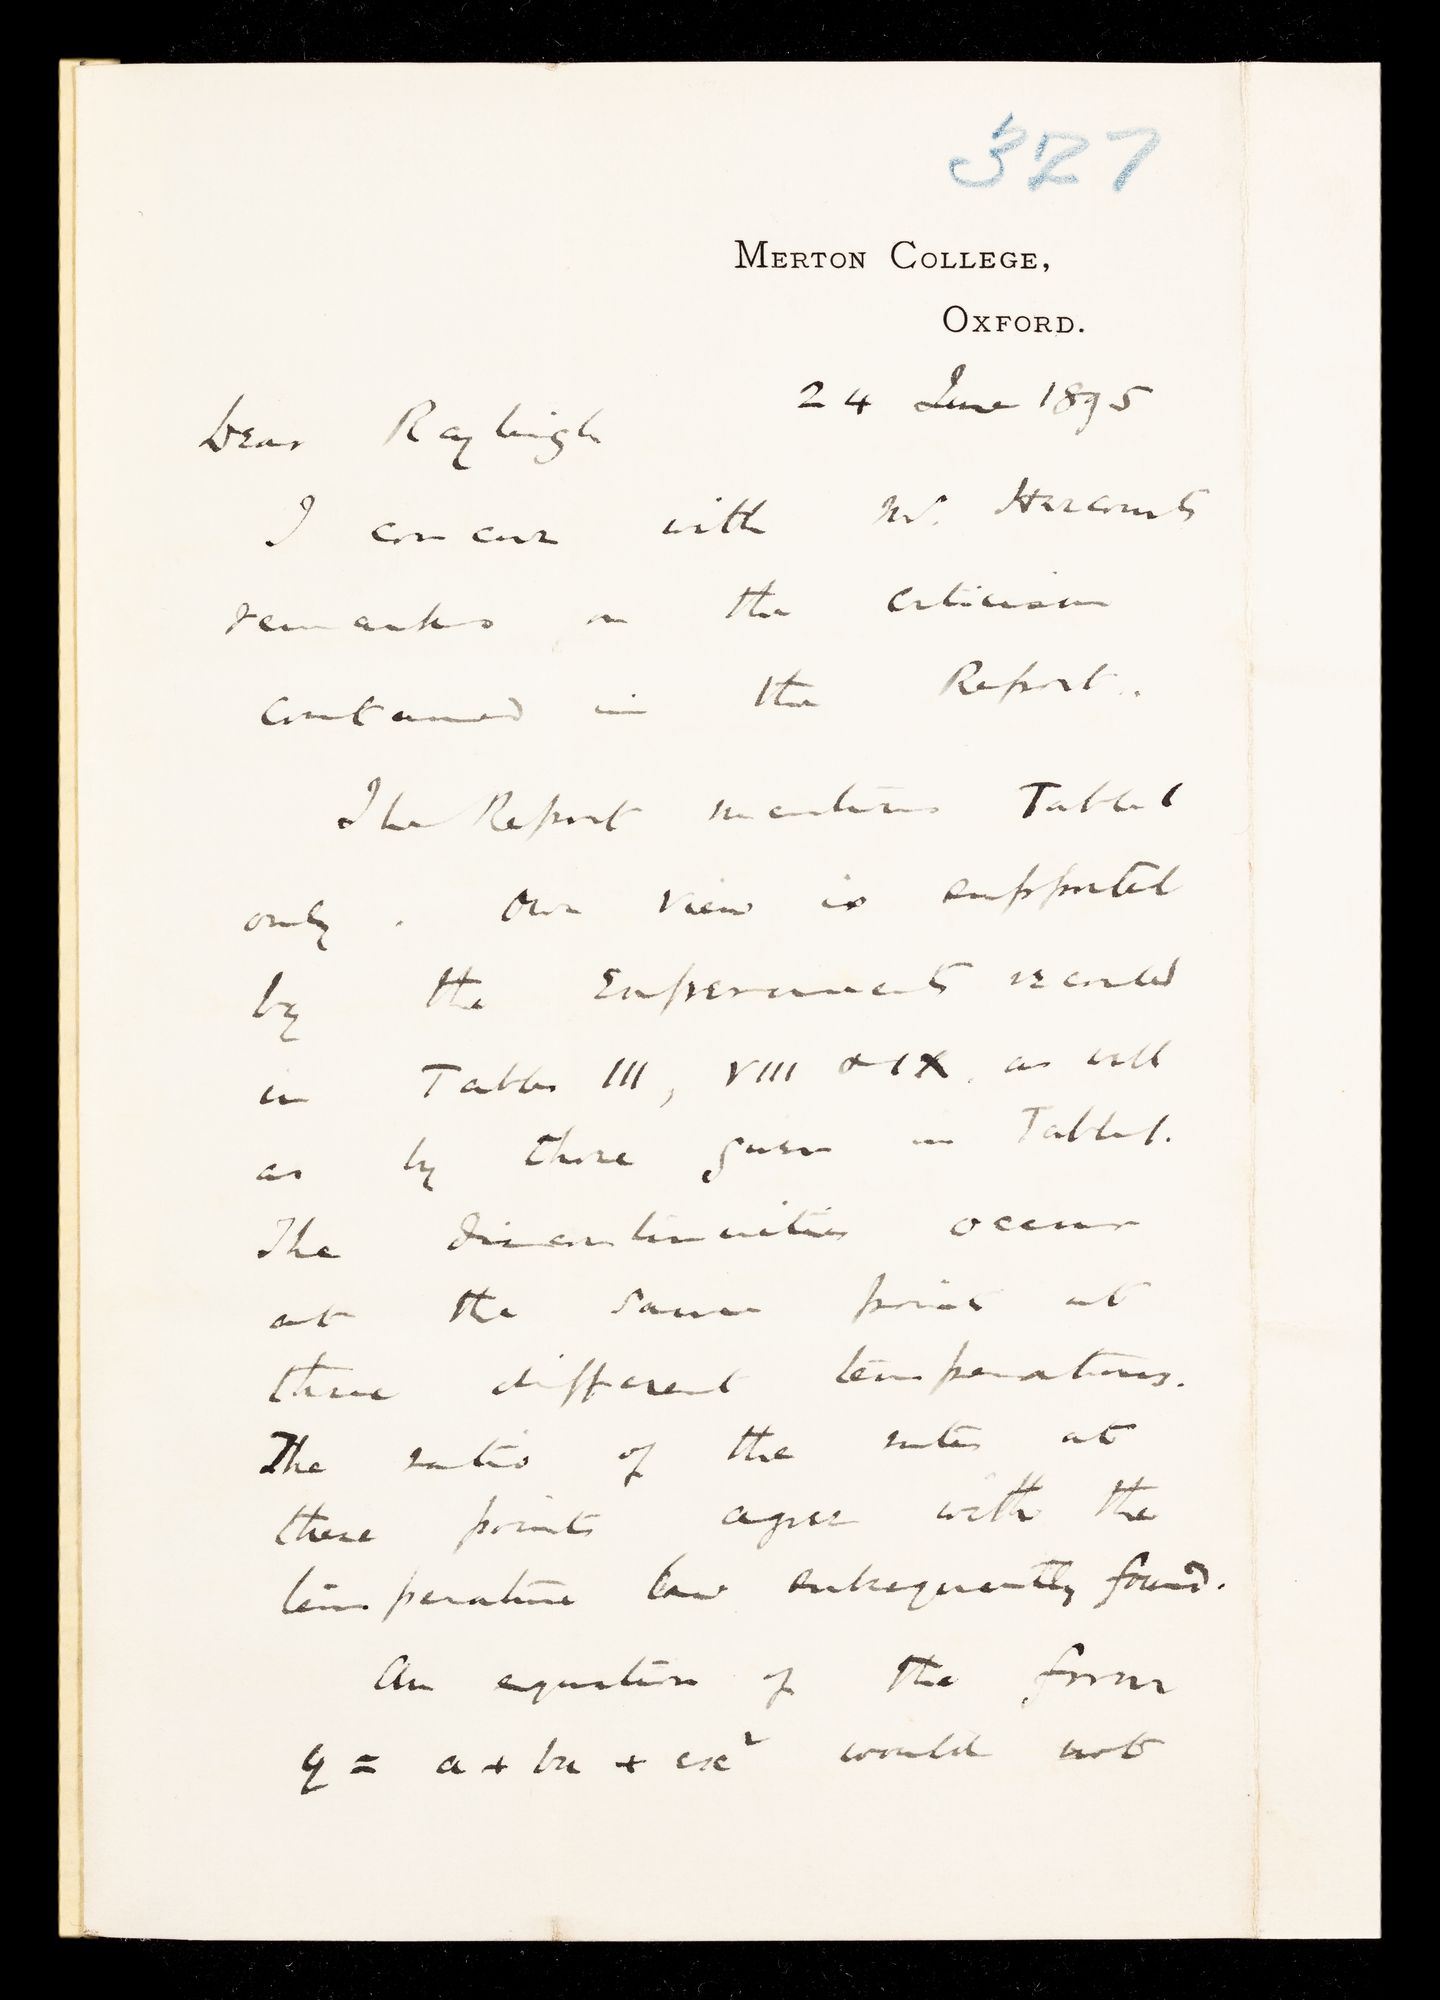 327
MERTON COLLEGE,
OXFORD.
24 June 1895
Dear Rayleigh
I concur with Mr. Harcourt's
remarks on the criticism
contained in the Report.
The Report mentions Table I
only. Our view is supported
by the Experiments recorded
in Tables III, VIII & IX as well
as by those given in Table I.
The discontinuities occur
at the same point at
three different temperatures.
The ratio of the rates at
these points agree with the
temperature law subsequently found.
An equation of the form
y = a + bx + cx² would not